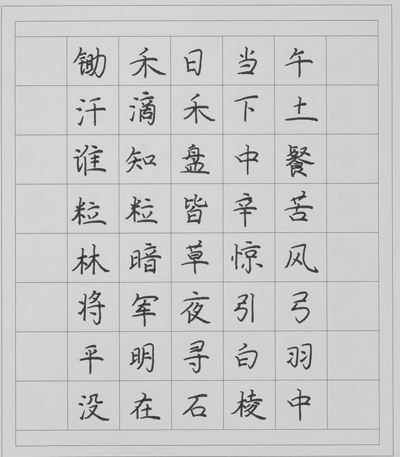 锄禾日当午
汗滴禾下土
谁知盘中餐
粒粒皆辛苦
林暗草惊风
将军夜引弓
平明寻白羽
没在石棱中